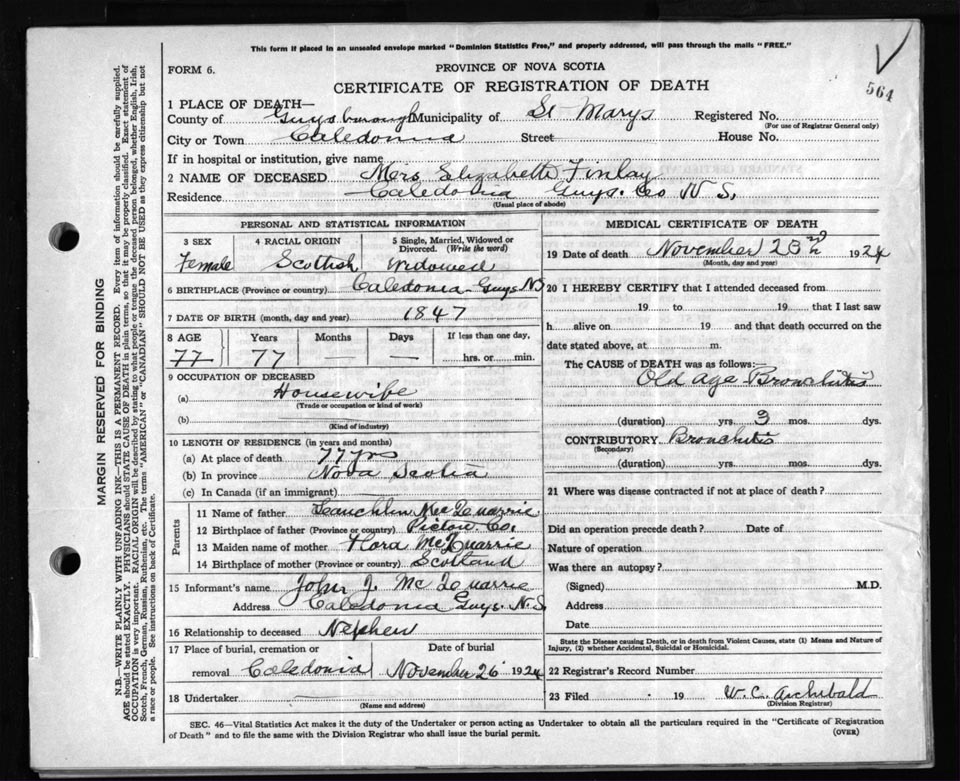 This form if placed in an unsealed envelope marked "Dominion Statistics Free," and properly addressed, will pass through the mails "FREE."
FORM 6.
PROVINCE OF NOVA SCOTIA
CERTIFICATE OF REGISTRATION OF DEATH
564
1 PLACE OF DEATH—
County of Guysborough Municipality of St Marys Registered No.
(For use of Registrar General only)
City or Town Caledonia Street House No.
If in hospital or institution, give name
2 NAME OF DECEASED Mers Elizabeth Finlay
Residence Caledonia Guys. Co N S.
(Usual place of abode)
PERSONAL AND STATISTICAL INFORMATION
3 SEX 4 RACIAL ORIGIN 5 Single, Married, Widowed or Divorced. (Write the word)
Female Scottish Widowed
6 BIRTHPLACE (Province or country) Caledonia Guys NS
7 DATE OF BIRTH (month, day and year) 1847
8 AGE Years Months Days If less than one day,
77 77 — — hrs. or min.
9 OCCUPATION OF DECEASED
(a) Housewife
(Trade or occupation or kind of work)
(b)
(Kind of industry)
10 LENGTH OF RESIDENCE (in years and months)
(a) At place of death 77 yrs
(b) In province Nova Scotia
(c) In Canada (if an immigrant)
Parents
11 Name of father Lauchlin Mc Quarrie
12 Birthplace of father (Province or country) Pictou Co.
13 Maiden name of mother Flora McQuarrie
14 Birthplace of mother (Province or country) Scotland
15 Informant's name John J. Mc Quarrie
Address Caledonia Guys. N.S.
16 Relationship to deceased Nephew
17 Place of burial, cremation or removal Caledonia Date of burial November 26 1924
18 Undertaker
(Name and address)
MEDICAL CERTIFICATE OF DEATH
19 Date of death November 1924
(Month, day and year)
20 I HEREBY CERTIFY that I attended deceased from
19 to 19 that I last saw
h alive on 19 and that death occurred on the
date stated above, at m.
The CAUSE of DEATH was as follows:—
Old Age Bronchitis
(duration) yrs. 3 mos. dys.
CONTRIBUTORY Bronchitis
(Secondary)
(duration) yrs. mos. dys.
21 Where was disease contracted if not at place of death?
Did an operation precede death? Date of
Nature of operation
Was there an autopsy?
(Signed) M.D.
Address
Date
State the Disease causing Death, or in death from Violent Causes, state (1) Means and Nature of Injury, (2) whether Accidental, Suicidal or Homicidal.
22 Registrar's Record Number
23 Filed 19 W. C. Archibald
(Division Registrar)
SEC. 46—Vital Statistics Act makes it the duty of the Undertaker or person acting as Undertaker to obtain all the particulars required in the "Certificate of Registration
of Death" and to file the same with the Division Registrar who shall issue the burial permit.
(OVER)
MARGIN RESERVED FOR BINDING
N.B.—WRITE PLAINLY WITH UNFADING INK—THIS IS A PERMANENT RECORD. Every item of information should be carefully supplied.
AGE should be stated EXACTLY. PHYSICIANS should STATE CAUSE OF DEATH in plain terms, so that it may be properly classified. Exact statement of
OCCUPATION is very important. RACIAL ORIGIN will be described by stating to what people or tongue the deceased person belonged, whether English, Irish,
Scotch, French, German, Russian, Ruthenian, etc. The terms "AMERICAN" or "CANADIAN" SHOULD NOT BE USED as they express citizenship but not
a race or people. See instructions on back of Certificate.